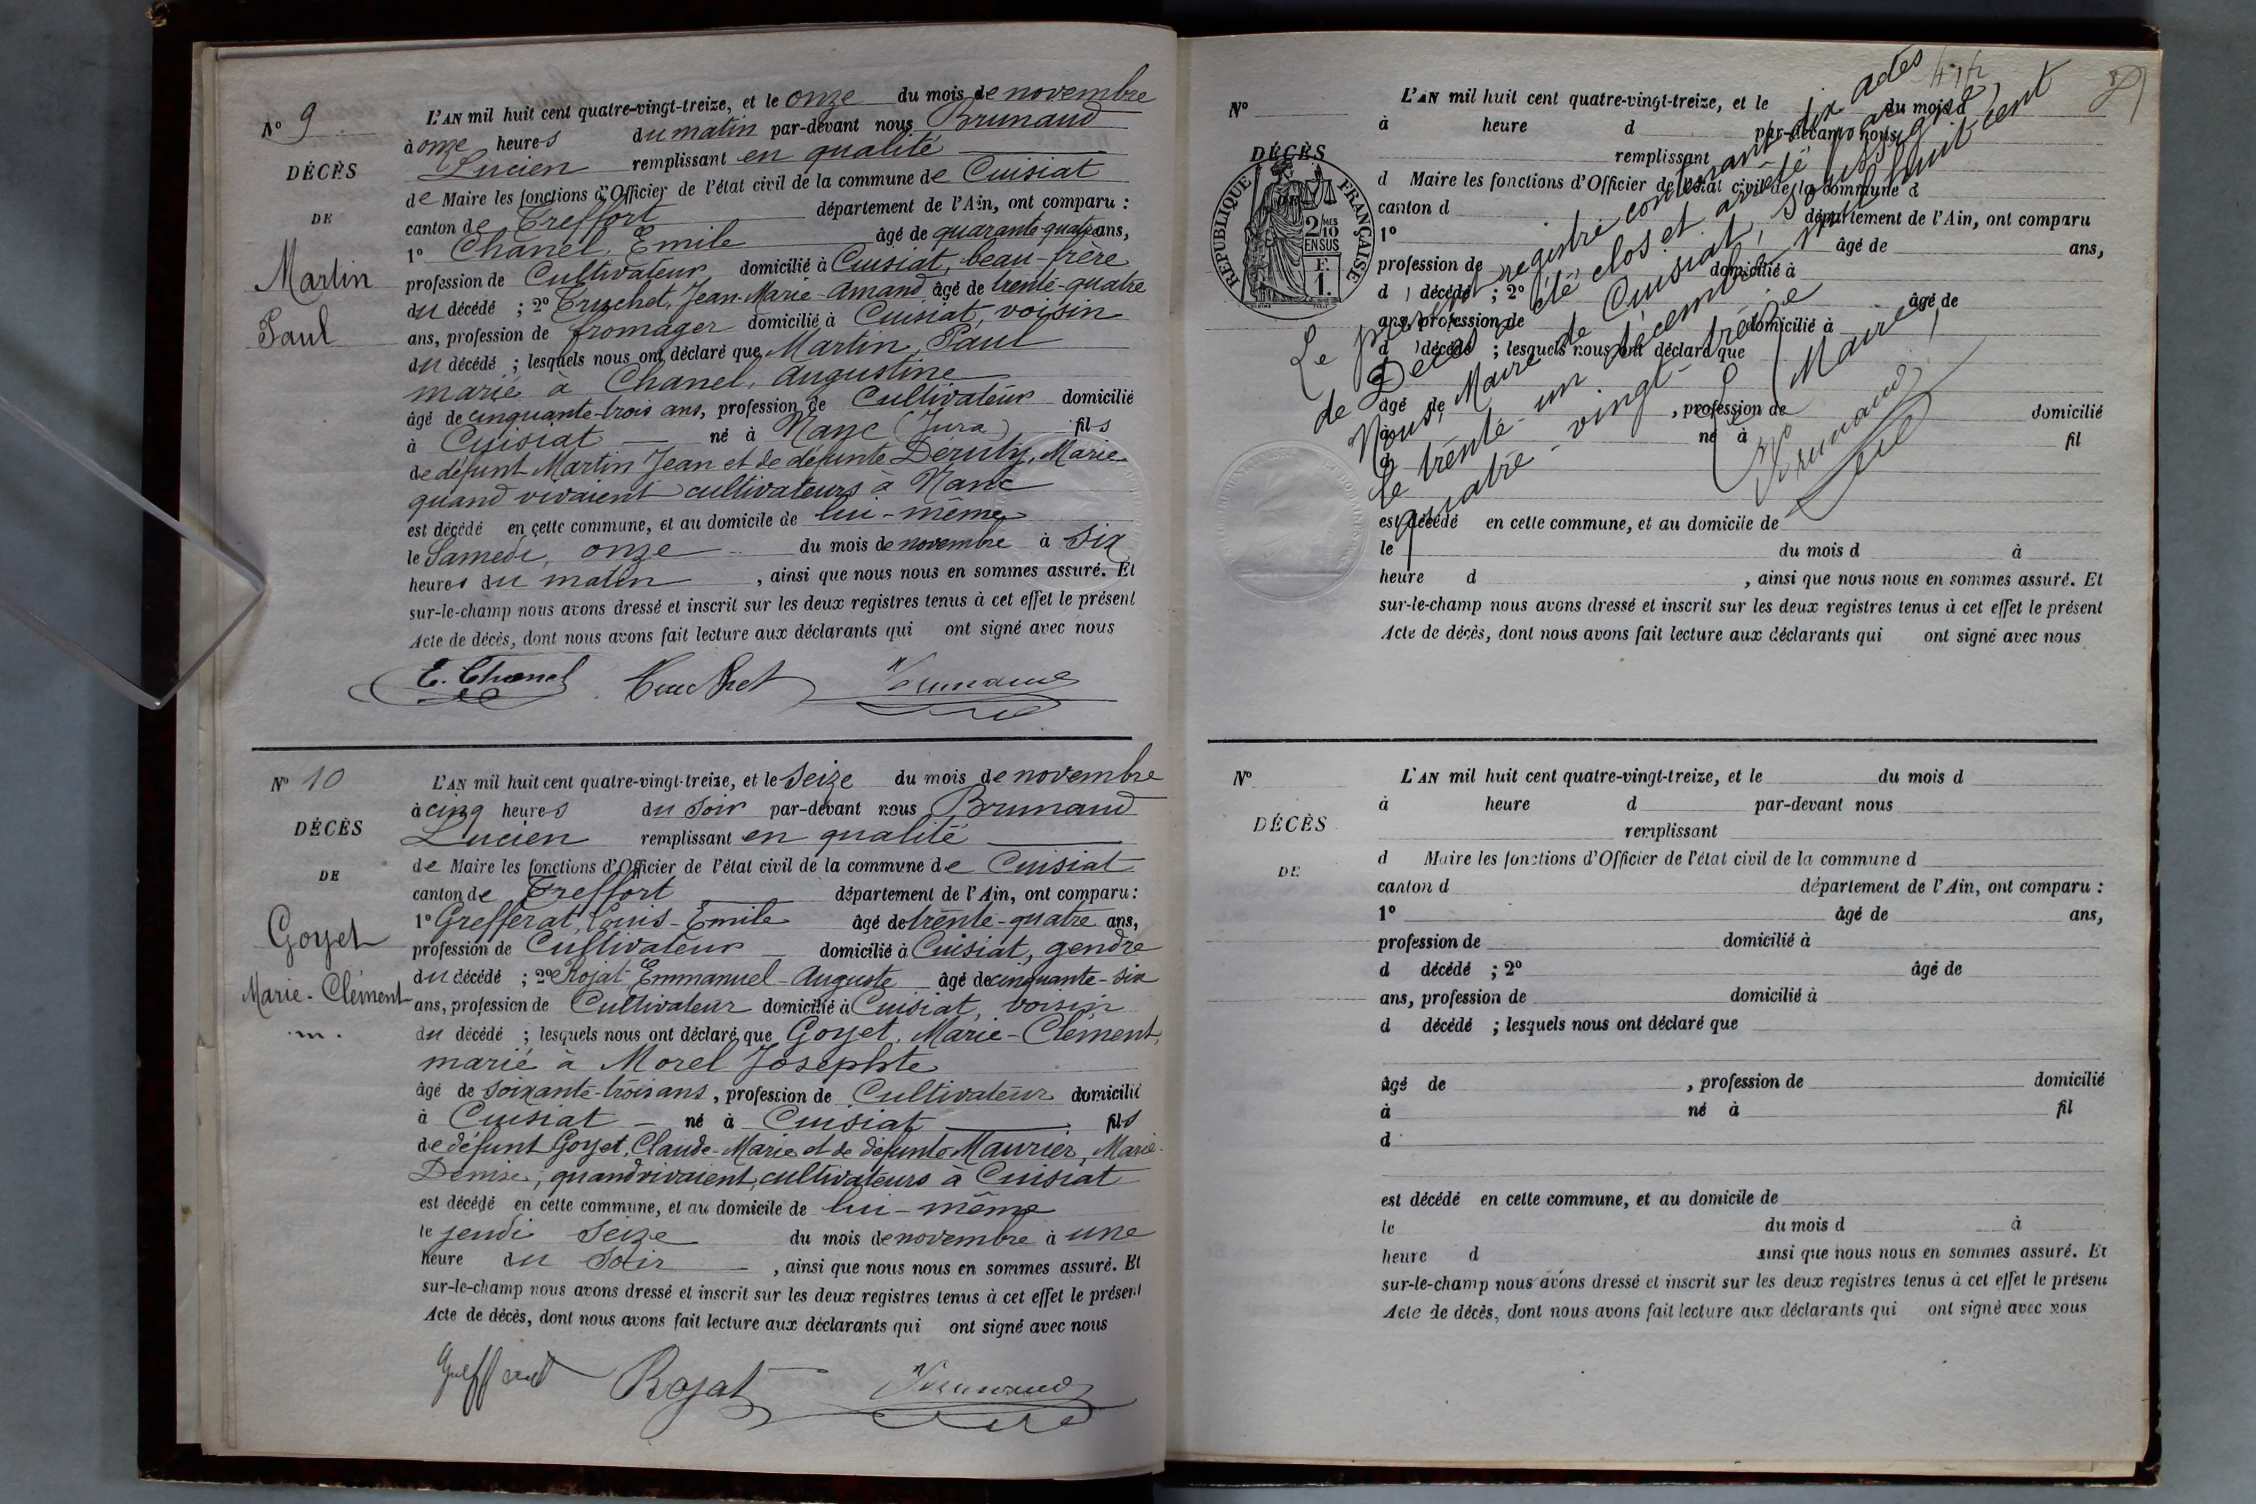 N° 9
DÉCÈS
DE
Martin
Paul
L'AN mil huit cent quatre-vingt-treize, et le onze du mois de novembre
à onze heures du matin par-devant nous Brunaud
Lucien remplissant en qualité
de Maire les fonctions d'Officier de l'état civil de la commune de Cuisiat
canton de Treffort département de l'Ain, ont comparu :
1° Chanel, Emile âgé de quarante-quatre ans,
profession de Cultivateur domicilié à Cuisiat, beau-frère
du décédé ; 2° Truchet, Jean-Marie-Amand âgé de trente-quatre
ans, profession de fromager domicilié à Cuisiat, voisin
du décédé ; lesquels nous ont déclaré que Martin, Paul
marié à Chanel, Augustine
âgé de cinquante-trois ans, profession de Cultivateur domicilié
à Cuisiat né à Nanc (Jura) fils
de défunt Martin Jean et de défunte Deruty, Marie
quand vivaient cultivateurs à Nanc
est décédé en cette commune, et au domicile de lui-même
le Samedi, onze du mois de novembre à six
heures du matin, ainsi que nous nous en sommes assuré. Et
sur-le-champ nous avons dressé et inscrit sur les deux registres tenus à cet effet le présent
Acte de décès, dont nous avons fait lecture aux déclarants qui ont signé avec nous
E. Chanel Truchet Brunaud
N° 10
DÉCÈS
DE
Goyet
Marie-Clément
m.
L'AN mil huit cent quatre-vingt-treize, et le seize du mois de novembre
à cinq heures du soir par-devant nous Brunaud
Lucien remplissant en qualité
de Maire les fonctions d'Officier de l'état civil de la commune de Cuisiat
canton de Treffort département de l'Ain, ont comparu :
1° Grefferat, Louis-Emile âgé de trente-quatre ans,
profession de Cultivateur domicilié à Cuisiat, gendre
du décédé ; 2° Rojat Emmanuel-Auguste âgé de cinquante-six
ans, profession de Cultivateur domicilié à Cuisiat, voisin
du décédé ; lesquels nous ont déclaré que Goyet, Marie-Clément,
marié à Morel Josephte
âgé de soixante-trois ans, profession de Cultivateur domicilié
à Cuisiat né à Cuisiat fils
de défunt Goyet, Claude-Marie et de défunte Maurier, Marie-
Denise, quand vivaient, cultivateurs à Cuisiat
est décédé en cette commune, et au domicile de lui-même
le jeudi seize du mois de novembre à une
heure du soir, ainsi que nous nous en sommes assuré. Et
sur-le-champ nous avons dressé et inscrit sur les deux registres tenus à cet effet le présent
Acte de décès, dont nous avons fait lecture aux déclarants qui ont signé avec nous
Grefferat Rojat Brunaud
N°
DÉCÈS
RÉPUBLIQUE FRANÇAISE
2/10
EN SUS
F.
1.
L'AN mil huit cent quatre-vingt-treize, et le du mois d
à heure d par-devant nous
remplissant
d Maire les fonctions d'Officier de l'état civil de la commune d
canton d département de l'Ain, ont comparu
1° âgé de ans,
profession de domicilié à
d décédé ; 2° âgé de
ans, profession de domicilié à
d décédé ; lesquels nous ont déclaré que
âgé de , profession de domicilié
à né à fil
d
est décédé en cette commune, et au domicile de
le du mois d à
heure d , ainsi que nous nous en sommes assuré. Et
sur-le-champ nous avons dressé et inscrit sur les deux registres tenus à cet effet le présent
Acte de décès, dont nous avons fait lecture aux déclarants qui ont signé avec nous
Le présent registre contenant dix actes
de Décès a été clos et arrêté par
Nous, Maire de Cuisiat, soussigné,
le trente-un décembre mil huit cent
quatre-vingt-treize
Le Maire,
Brunaud
N°
DÉCÈS
DE
L'AN mil huit cent quatre-vingt-treize, et le du mois d
à heure d par-devant nous
remplissant
d Maire les fonctions d'Officier de l'état civil de la commune d
canton d département de l'Ain, ont comparu :
1° âgé de ans,
profession de domicilié à
d décédé ; 2° âgé de
ans, profession de domicilié à
d décédé ; lesquels nous ont déclaré que
âgé de , profession de domicilié
à né à fil
d
est décédé en cette commune, et au domicile de
le du mois d à
heure d ainsi que nous nous en sommes assuré. Et
sur-le-champ nous avons dressé et inscrit sur les deux registres tenus à cet effet le présent
Acte de décès, dont nous avons fait lecture aux déclarants qui ont signé avec nous